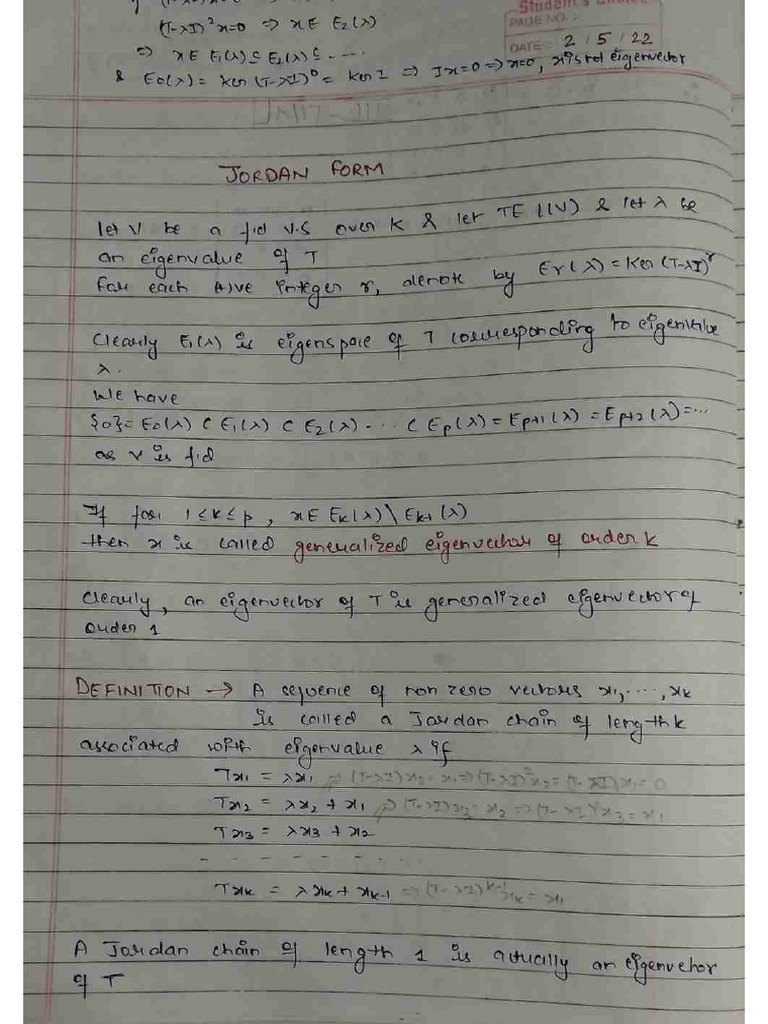 (T-λI)²x=0 ⇒ x∈ E₂(λ)
⇒ x∈ E₁(λ) ⊆ E₂(λ) ⊆ ....
& E₀(λ) = Ker (T-λI)⁰ = Ker I ⇒ Ix=0 ⇒ x=0, x is not eigenvector
PAGE NO.:
DATE: 2/5/22
UNIT-III
JORDAN FORM
let V be a fid V.S over K & let T∈ L(V) & let λ be
an eigenvalue of T
For each (+)ve integer r, denote by Er(λ) = Ker (T-λI)^r
Clearly E₁(λ) is eigenspace of T corresponding to eigenvalue
λ.
We have
{0} = E₀(λ) ⊂ E₁(λ) ⊂ E₂(λ) ... ⊂ Ep(λ) = Ep+1(λ) = Ep+2(λ) = ...
as V is f.d
If for 1≤k≤p, x∈ Ek(λ) \ Ek-1(λ)
then x is called generalized eigenvector of order k
Clearly, an eigenvector of T is generalized eigenvector of
order 1
DEFINITION → A sequence of non zero vectors x₁, ..., xk
is called a Jordan chain of length k
associated with eigenvalue λ if
Tx₁ = λx₁ ⇒ (T-λI)x₂ = x₁ ⇒ (T-λI)²x₂ = (T-λI)x₁ = 0
Tx₂ = λx₂ + x₁ ⇒ (T-λI)x₃ = x₂ ⇒ (T-λI)²x₃ = x₁
Tx₃ = λx₃ + x₂
- - - - - - - -
Txk = λxk + xk-1 ⇒ (T-λI)^k-1 xk = x₁
A Jordan chain of length 1 is actually an eigenvector
of T